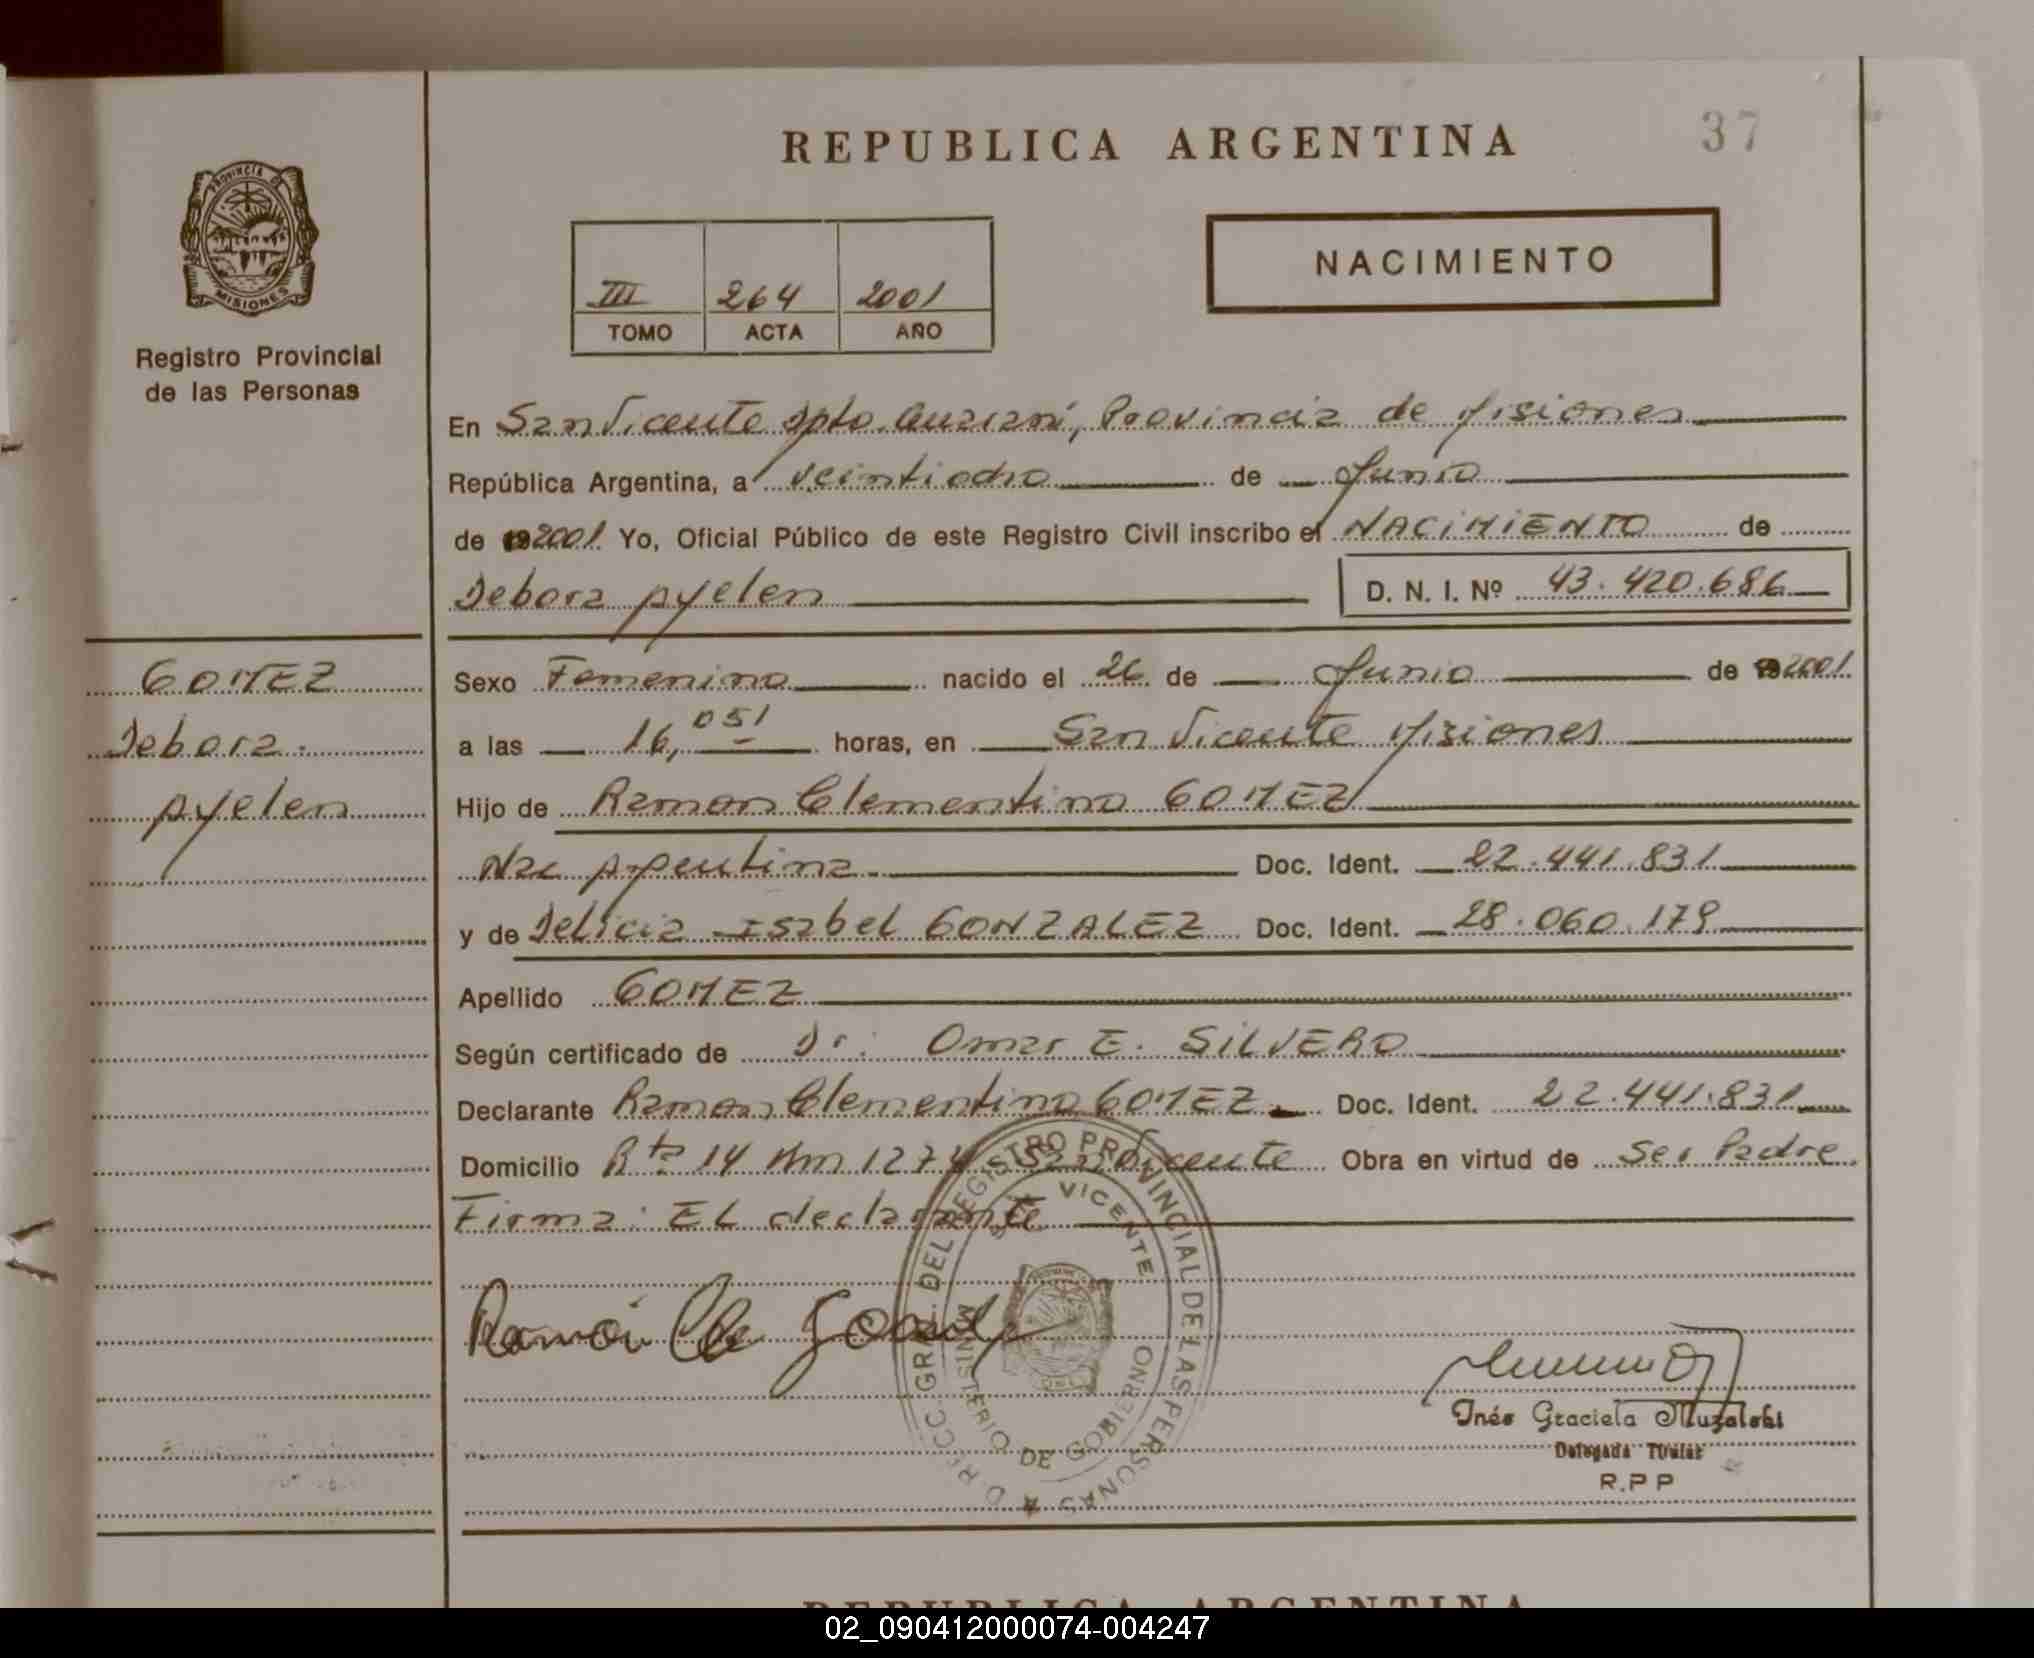 REPUBLICA ARGENTINA
37
PROVINCIA DE
MISIONES
Registro Provincial
de las Personas
III 264 2001
TOMO ACTA AÑO
NACIMIENTO
En San Vicente Dpto. Guaraní, Provincia de Misiones
República Argentina, a veintiocho de Junio
de 192001 Yo, Oficial Público de este Registro Civil inscribo el NACIMIENTO de
Debora Ayelen
D. N. I. Nº 43.420.686
GOMEZ
Debora
Ayelen
Sexo Femenino nacido el 26 de Junio de 192001
a las 16,05' horas, en San Vicente Misiones
Hijo de Ramon Clementino GOMEZ
Nac Argentina Doc. Ident. 22.441.831
y de Delicia Isabel GONZALEZ Doc. Ident. 28.060.179
Apellido GOMEZ
Según certificado de Dr. Omar E. SILVERO
Declarante Ramon Clementino GOMEZ Doc. Ident. 22.441.831
Domicilio Rta 14 Km 1274 San Vicente Obra en virtud de Ser Padre
Firma: EL declarante
D RECC. GRAL. DEL REGISTRO PROVINCIAL DE LAS PERSONAS
SAN VICENTE
MINISTERIO DE GOBIERNO
Ramón Cle
Inés Graciela Muzalski
Delegada Titular
R.P.P
REPUBLICA ARGENTINA
02_090412000074-004247